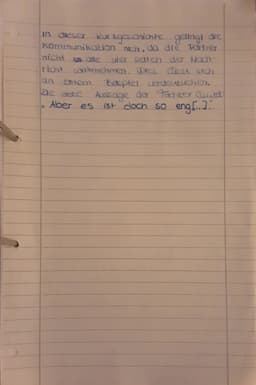 In dieser Kurzgeschichte gelingt die
Kommunikation nich, da die Partner
nicht alle vier Seiten der Nach-
richt wahrnehmen. Dies lässt sich
an einem Beispiel verdeutlichen.
Die Aussage der Tochter
"Aber es ist doch so eng[...]".